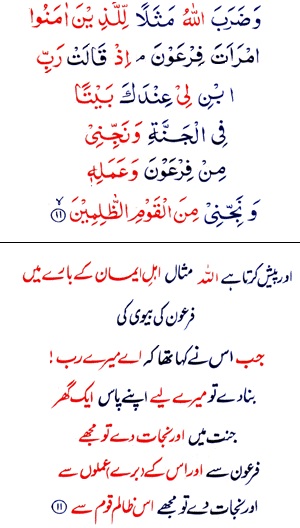 وَضَرَبَ اللّٰهُ مَثَلًا لِّلَّذِیْنَ اٰمَنُوا
امْرَاَتَ فِرْعَوْنَ ۘ اِذْ قَالَتْ رَبِّ
ابْنِ لِیْ عِنْدَكَ بَیْتًا
فِی الْجَنَّةِ وَنَجِّنِیْ
مِنْ فِرْعَوْنَ وَعَمَلِهٖ
وَنَجِّنِیْ مِنَ الْقَوْمِ الظّٰلِمِیْنَ ۙ﴿۱۱﴾
اور پیش کرتا ہے اللہ مثال اہلِ ایمان کے بارے میں
فرعون کی بیوی کی
جب اس نے کہا تھا کہ اے میرے رب!
بنا دے تو میرے لیے اپنے پاس ایک گھر
جنت میں اور نجات دے تو مجھے
فرعون سے اور اس کے (برے) عملوں سے
اور نجات دے تو مجھے اس ظالم قوم سے ﴿۱۱﴾